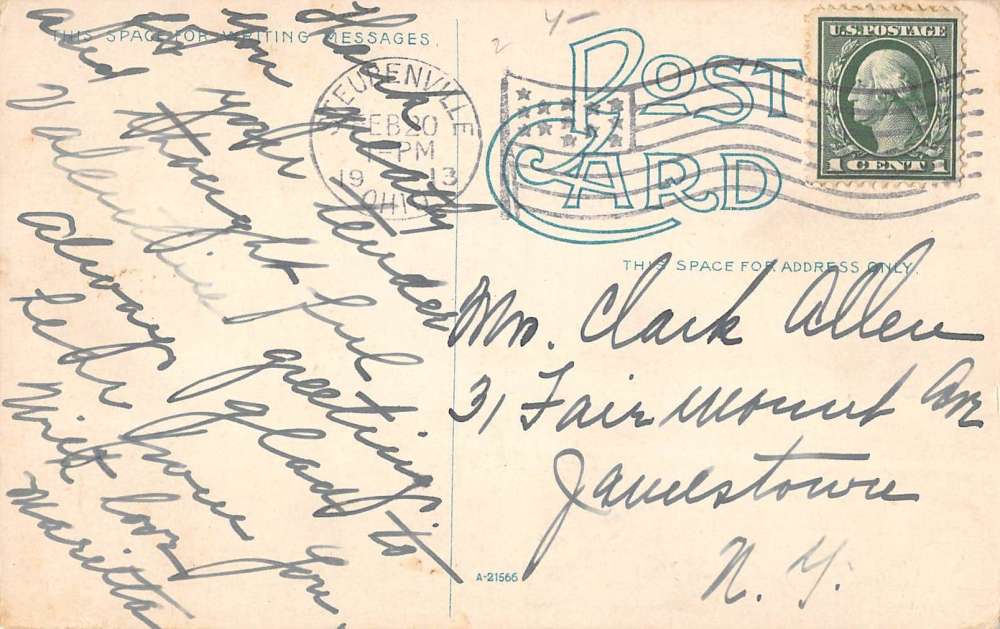 THIS SPACE FOR WRITING MESSAGES.
Thank
you
for your tender
and thoughtful
Valentine greetings
always glad to
hear from you
With love
Maritta
POST CARD
STEUBENVILLE
FEB 20
1-PM
1913
OHIO
U.S. POSTAGE
1 CENT 1
THIS SPACE FOR ADDRESS ONLY.
Mrs. Clark Allen
31 Fairmount Ave
Jamestown
N. Y.
A-21566